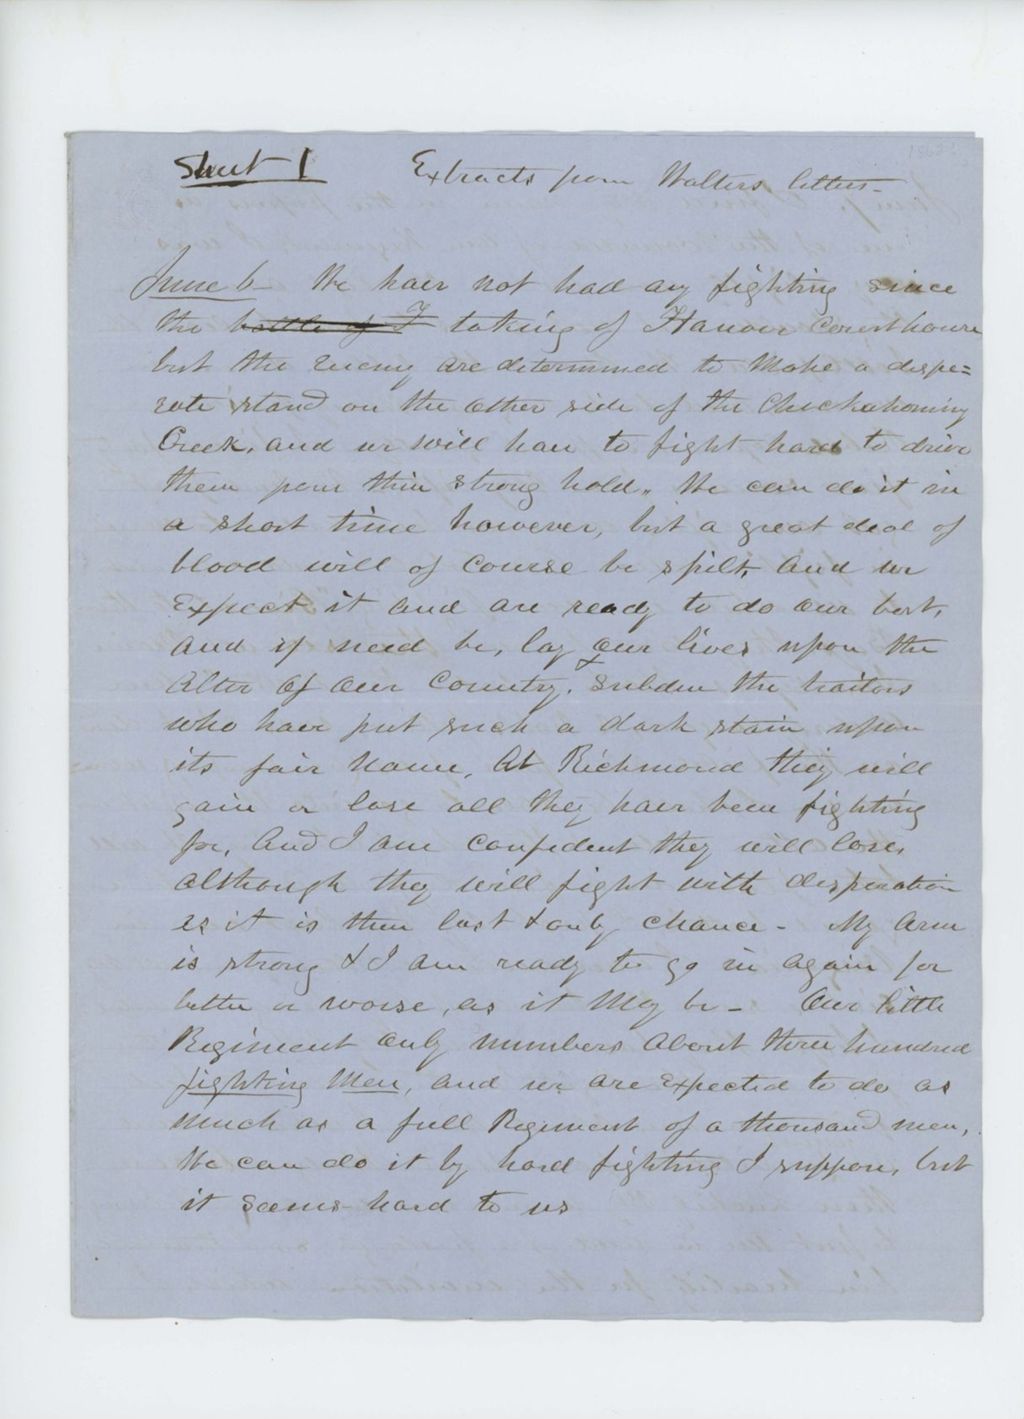 Sheet 1 Extracts from Walters letters -
June 6 - We have not had any fighting since
the battle of F taking of Hanover Courthouse
but the Enemy are determined to make a despe=
rate stand on the other side of the Chickahominy
Creek, and we will have to fight hard to drive
them from their strong hold. We can do it in
a short time however, but a great deal of
blood will of course be spilt, and we
Expect it and are ready to do our best,
and if need be, lay our lives upon the
Alter of our Country, subdue the traitors
who have put such a dark stain upon
its fair name. At Richmond they will
gain or lose all they have been fighting
for, And I am confident they will lose,
although they will fight with desperation
as it is their last & only chance - My arm
is strong & I am ready to go in again for
better or worse, as it may be - Our little
Regiment only numbers about three hundred
fighting men, and we are Expected to do as
much as a full Regiment of a thousand men,
We can do it by hard fighting I suppose, but
it seems hard to us